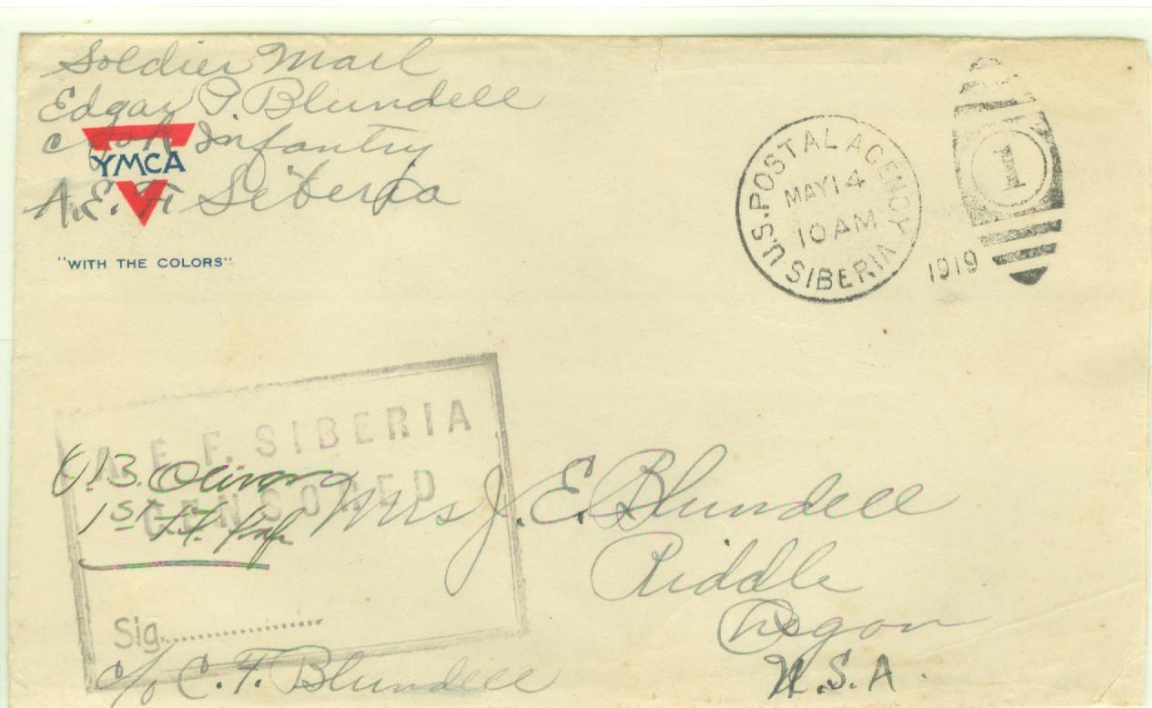 Soldier Mail
Edgar P. Blundell
Infantry
A.E.F. Siberia
YMCA
"WITH THE COLORS"
U.S. POSTAL AGENCY
MAY 14
10 AM
SIBERIA
1919
1
A.E.F. SIBERIA
CENSORED
1st Lt. Inf
Sig..................
Mrs J. E. Blundell
Riddle
Oregon
U.S.A.
c/o C. F. Blundell